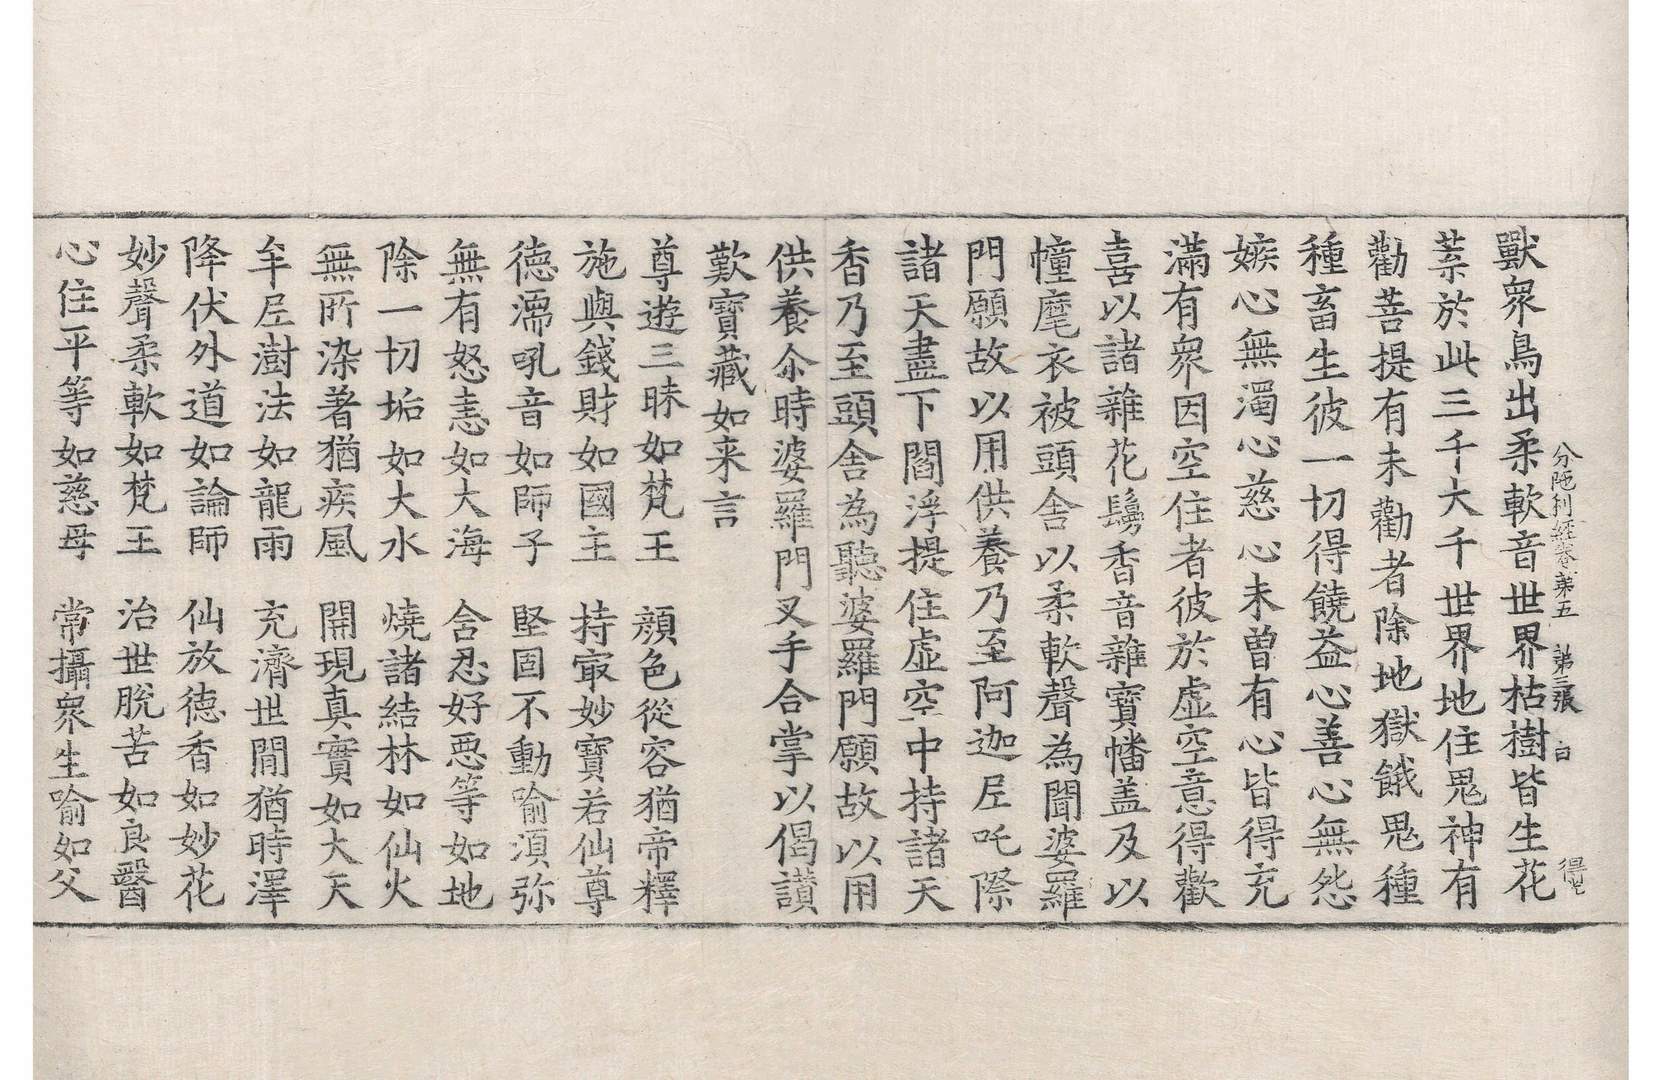 分陁利經卷第五　第三張　白
獸衆鳥出柔軟音世界枯樹皆生花
菓於此三千大千世界地住鬼神有
勸菩提有未勸者除地獄餓鬼種
種畜生彼一切得饒益心善心無怨
嫉心無濁心慈心未曾有心皆得充
滿有衆因空住者彼於虛空意得歡
喜以諸雜花鬘香音雜寶幡盖及以
幢麾衣被頭舍以柔軟聲為聞婆羅
門願故以用供養乃至阿迦尼吒際
諸天盡下閻浮提住虛空中持諸天
香乃至頭舍為聽婆羅門願故以用
供養尒時婆羅門叉手合掌以偈讃
歎寶藏如来言
尊遊三昧如梵王　顔色從容猶帝釋
施與錢財如國主　持㝡妙寶若仙尊
德濡吼音如師子　堅固不動喻須弥
無有怒恚如大海　含忍好惡等如地
除一切垢如大水　燒諸結林如仙火
無所染著猶疾風　開現真實如大天
牟尼澍法如龍雨　充濟世間猶時澤
降伏外道如論師　仙放德香如妙花
妙聲柔軟如梵王　治世脫苦如良醫
心住平等如慈母　常攝衆生喻如父